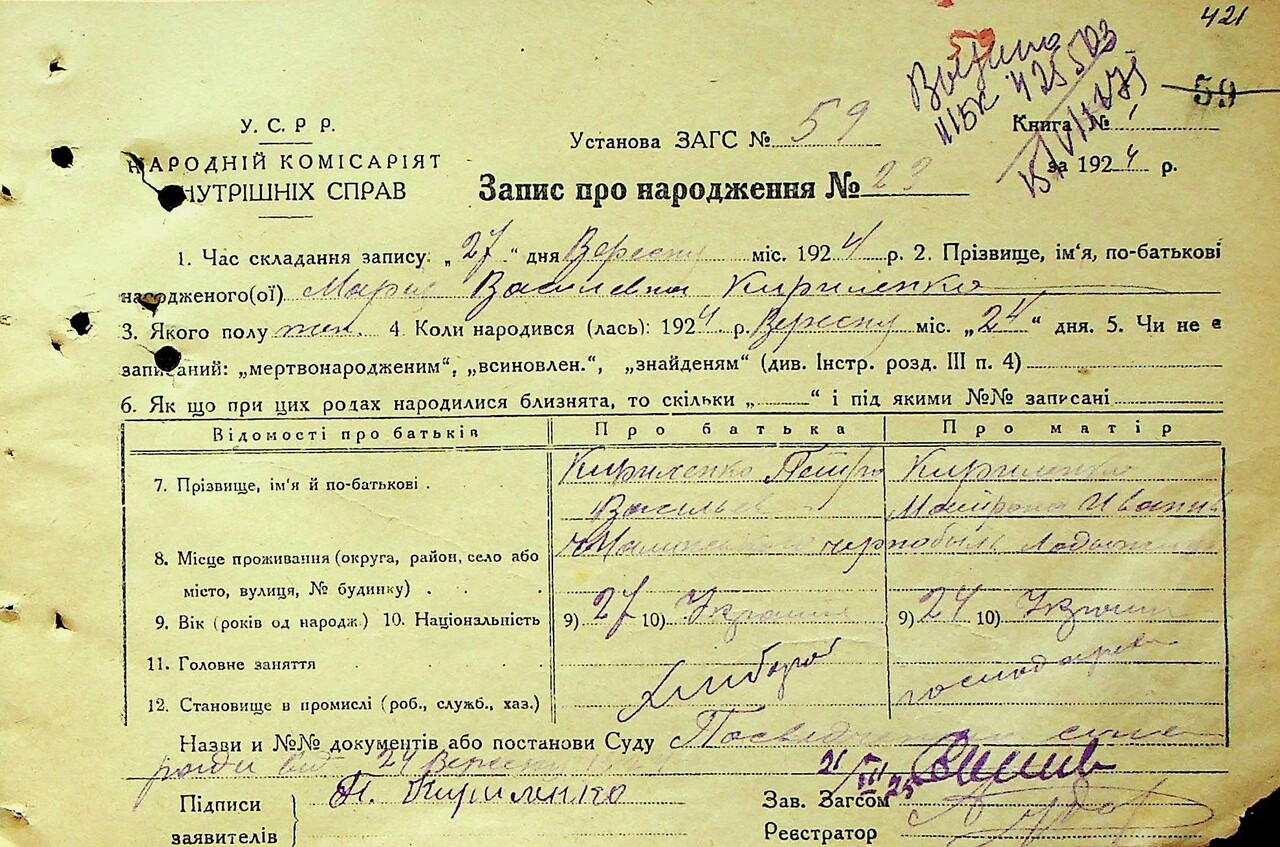 421
59
59
У. С. Р Р.
НАРОДНІЙ КОМІСАРІЯТ
НУТРІШНІХ СПРАВ
Установа ЗАГС № 59
Книга №
за 1924 р.
Запис про народження № 23
1. Час складання запису: „27“ дня Вересну міс. 1924 р. 2. Прізвище, ім'я, по-батькові
народженого(ої) Мария Василевна Кириленко
3. Якого полу жен. 4. Коли народився (лась): 1924 р. Вересну міс. „24“ дня. 5. Чи не є
записаний: „мертвонародженим“, „всиновлен.“, „знайденям“ (див. Інстр. розд. III п. 4)
6. Як що при цих родах народилися близнята, то скільки „ “ і під якими №№ записані
Відомості про батьків Про батька Про матір
7. Прізвище, ім'я й по-батькові . Кириленко Петро Кириленко
Васильев Мотрона Иванив
8. Місце проживання (округа, район, село або чорнобыль
місто, вулиця, № будинку) . .
9. Вік (років од народж.) 10. Національність 9) 27 10) Украин 9) 24 10) Украин
11. Головне заняття хлибороб господарка
12. Становище в промислі (роб., служб., хаз.)
Назви и №№ документів або постанови Суду Посвідчення сіль
ради від 24 Вересну
Підписи П. Кириленко Зав. Загсом
заявителів Реєстратор